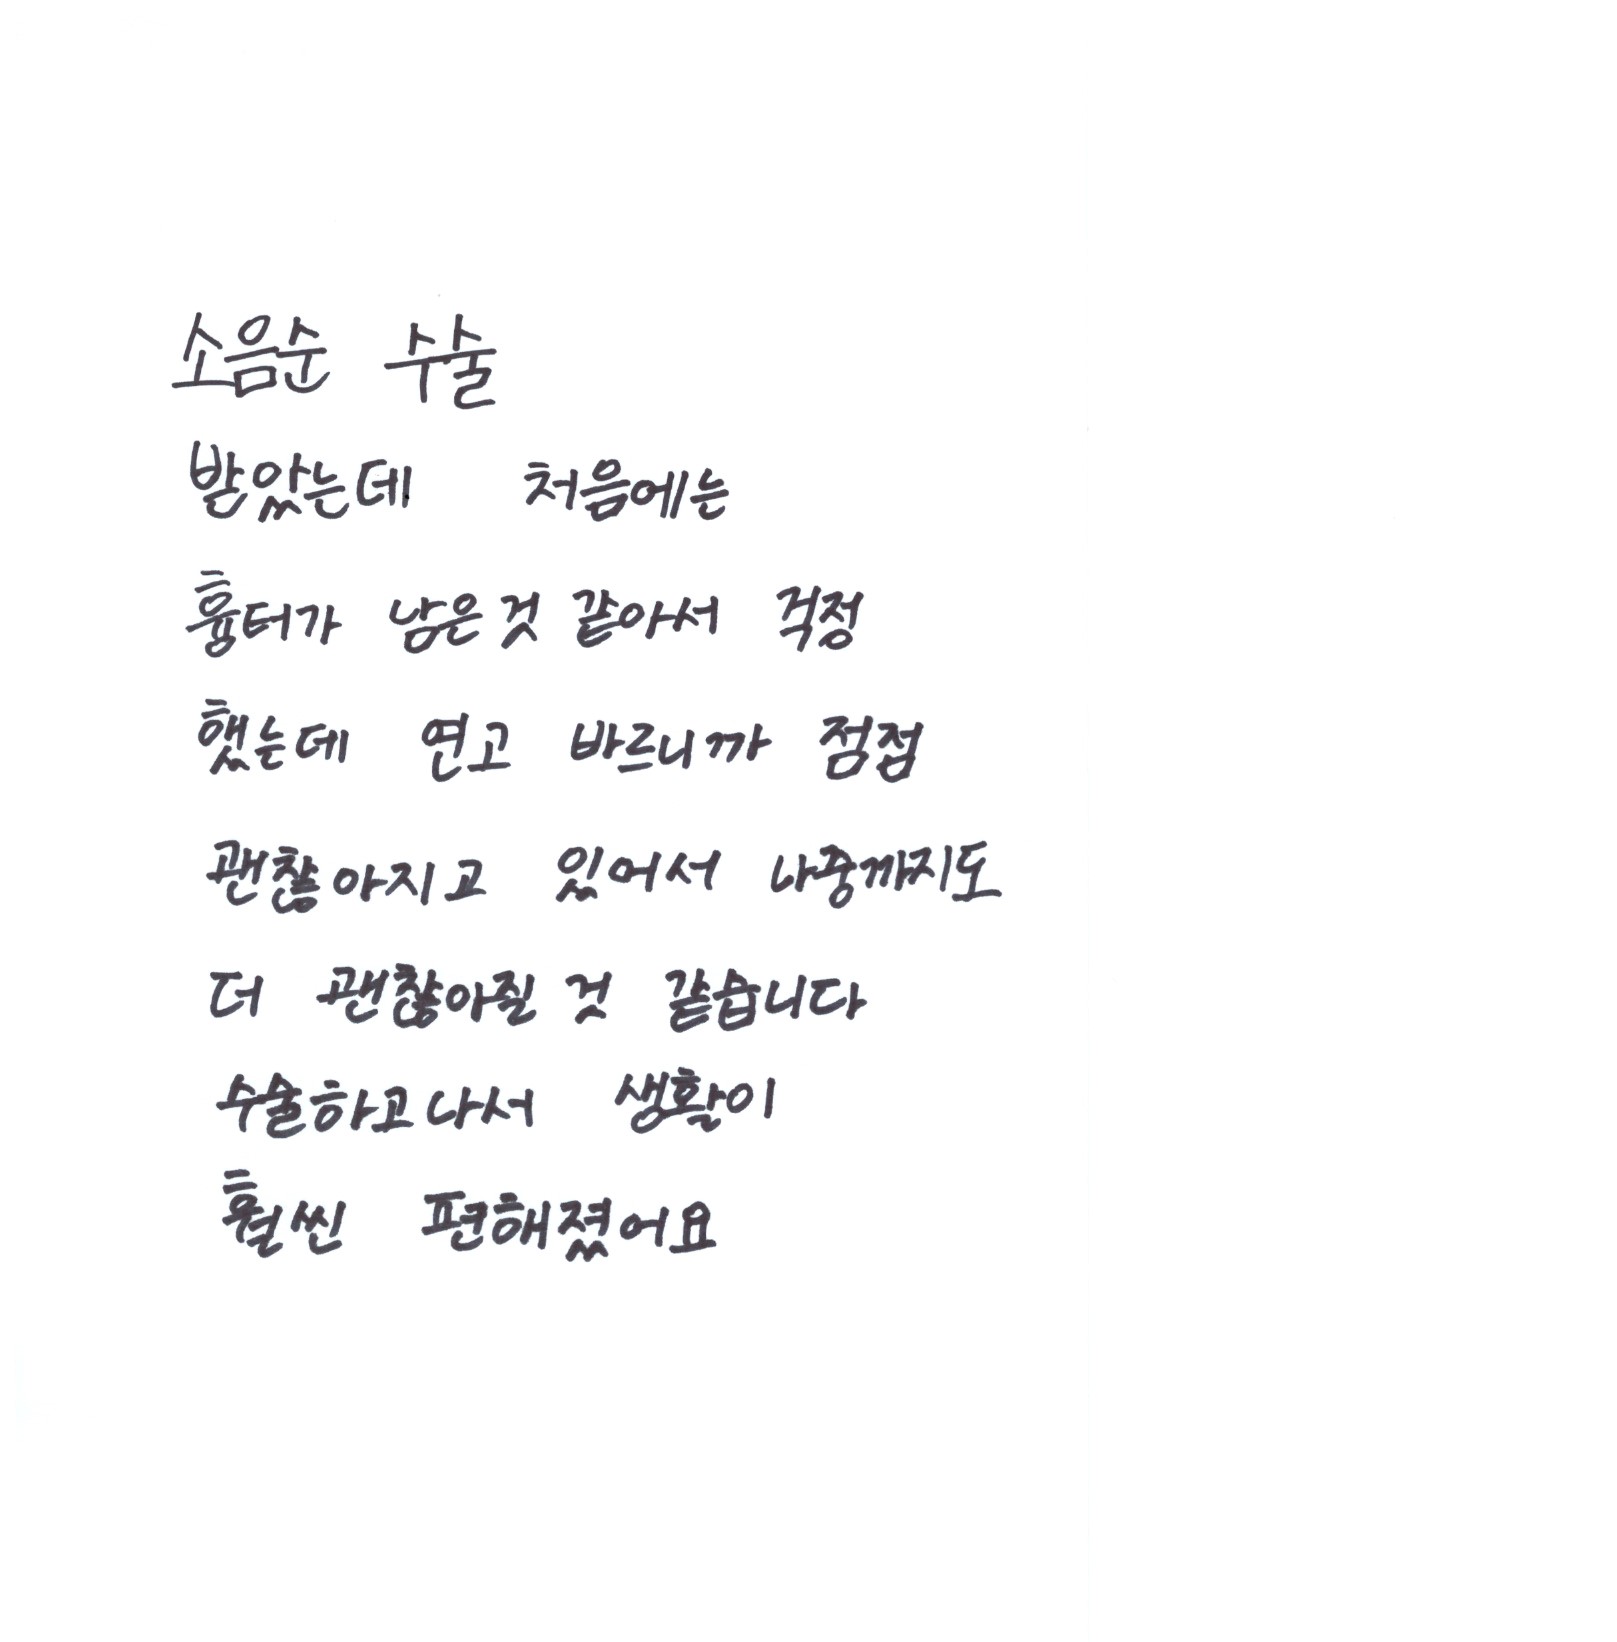 소음순 수술
받았는데 처음에는
흉터가 남은것 같아서 걱정
했는데 연고 바르니까 점점
괜찮아지고 있어서 나중까지도
더 괜찮아질 것 같습니다
수술하고나서 생활이
훨씬 편해졌어요